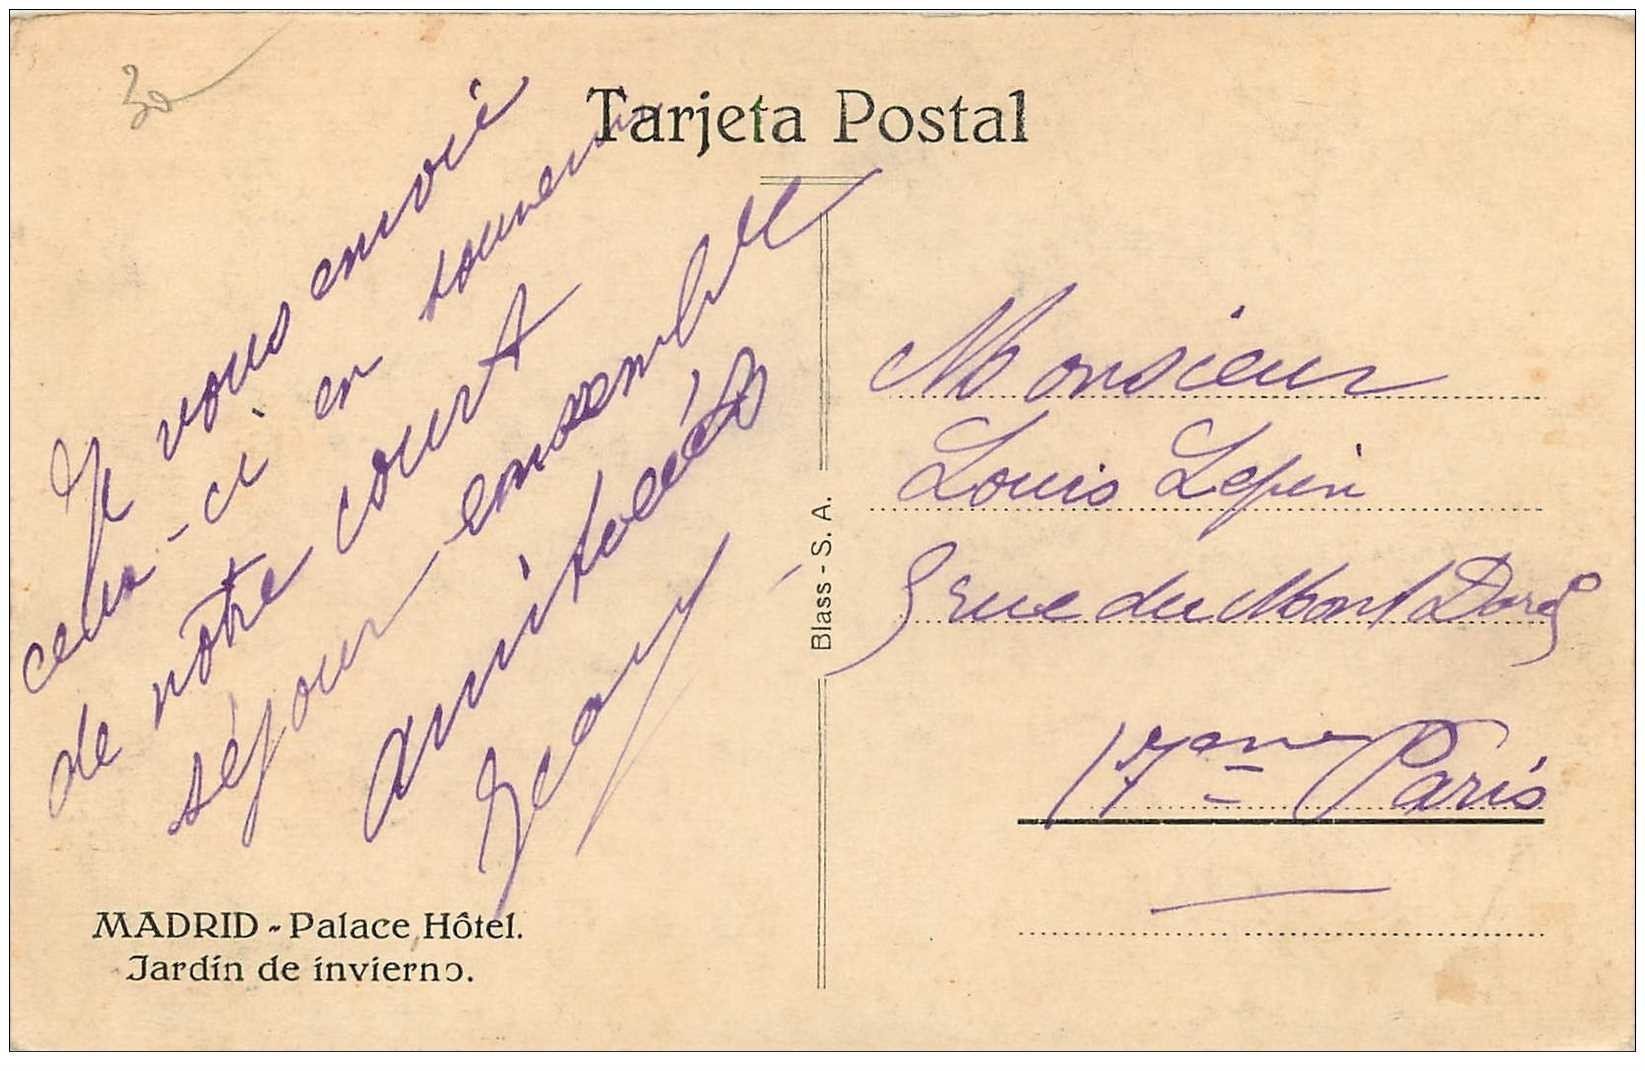 30
Tarjeta Postal
Je vous envoie
celui-ci en souvenir
de notre court
séjour ensemble
amitiés
MADRID - Palace Hôtel.
Jardín de invierno.
Blass - S. A.
Monsieur
Louis Lepin
rue du Mont Doré
17eme Paris